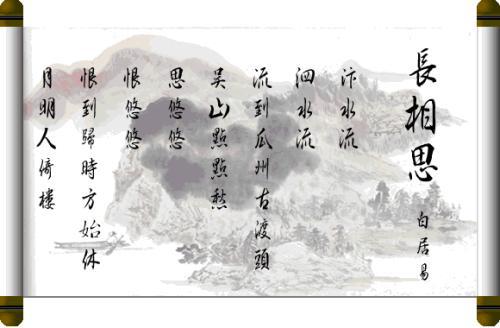 長相思
白居易
汴水流
泗水流
流到瓜州古渡頭
吳山點點愁
思悠悠
恨悠悠
恨到歸時方始休
月明人倚樓